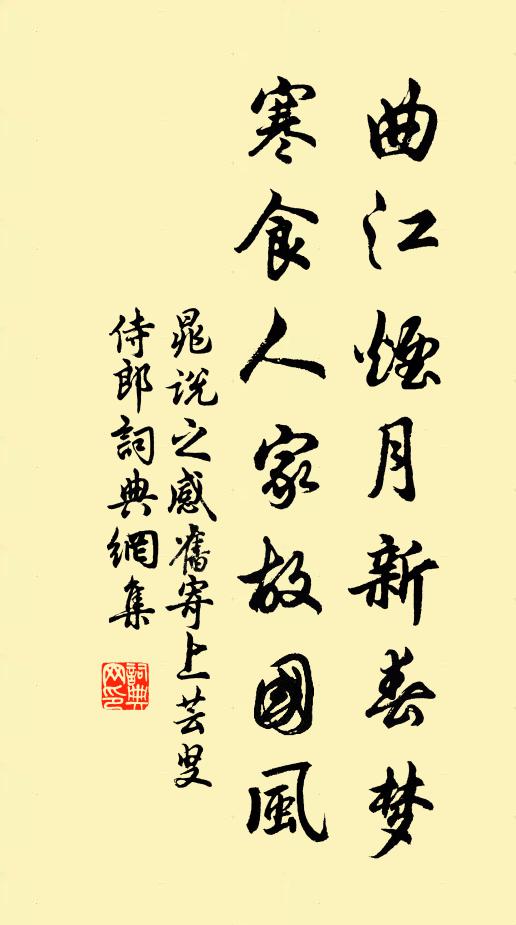 曲江煙月新春梦
寒食人家故國風
晁说之感舊寄上芸叟
侍郎詞典網集
詞典网印